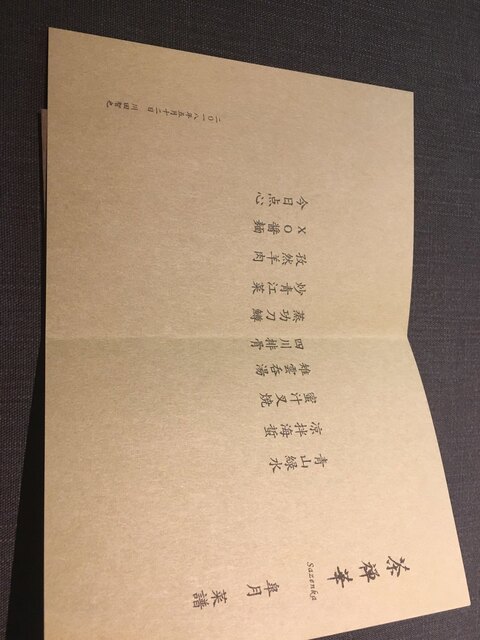 茶禅華
Sazenka
皐月
菜譜
青山緑水
涼拌海蜇
蜜汁叉焼
雉雲呑湯
四川排骨
蒸功刀鱒
炒青江菜
孜然羊肉
XO醬麺
今日点心
二〇一八年五月十二日
川田智也